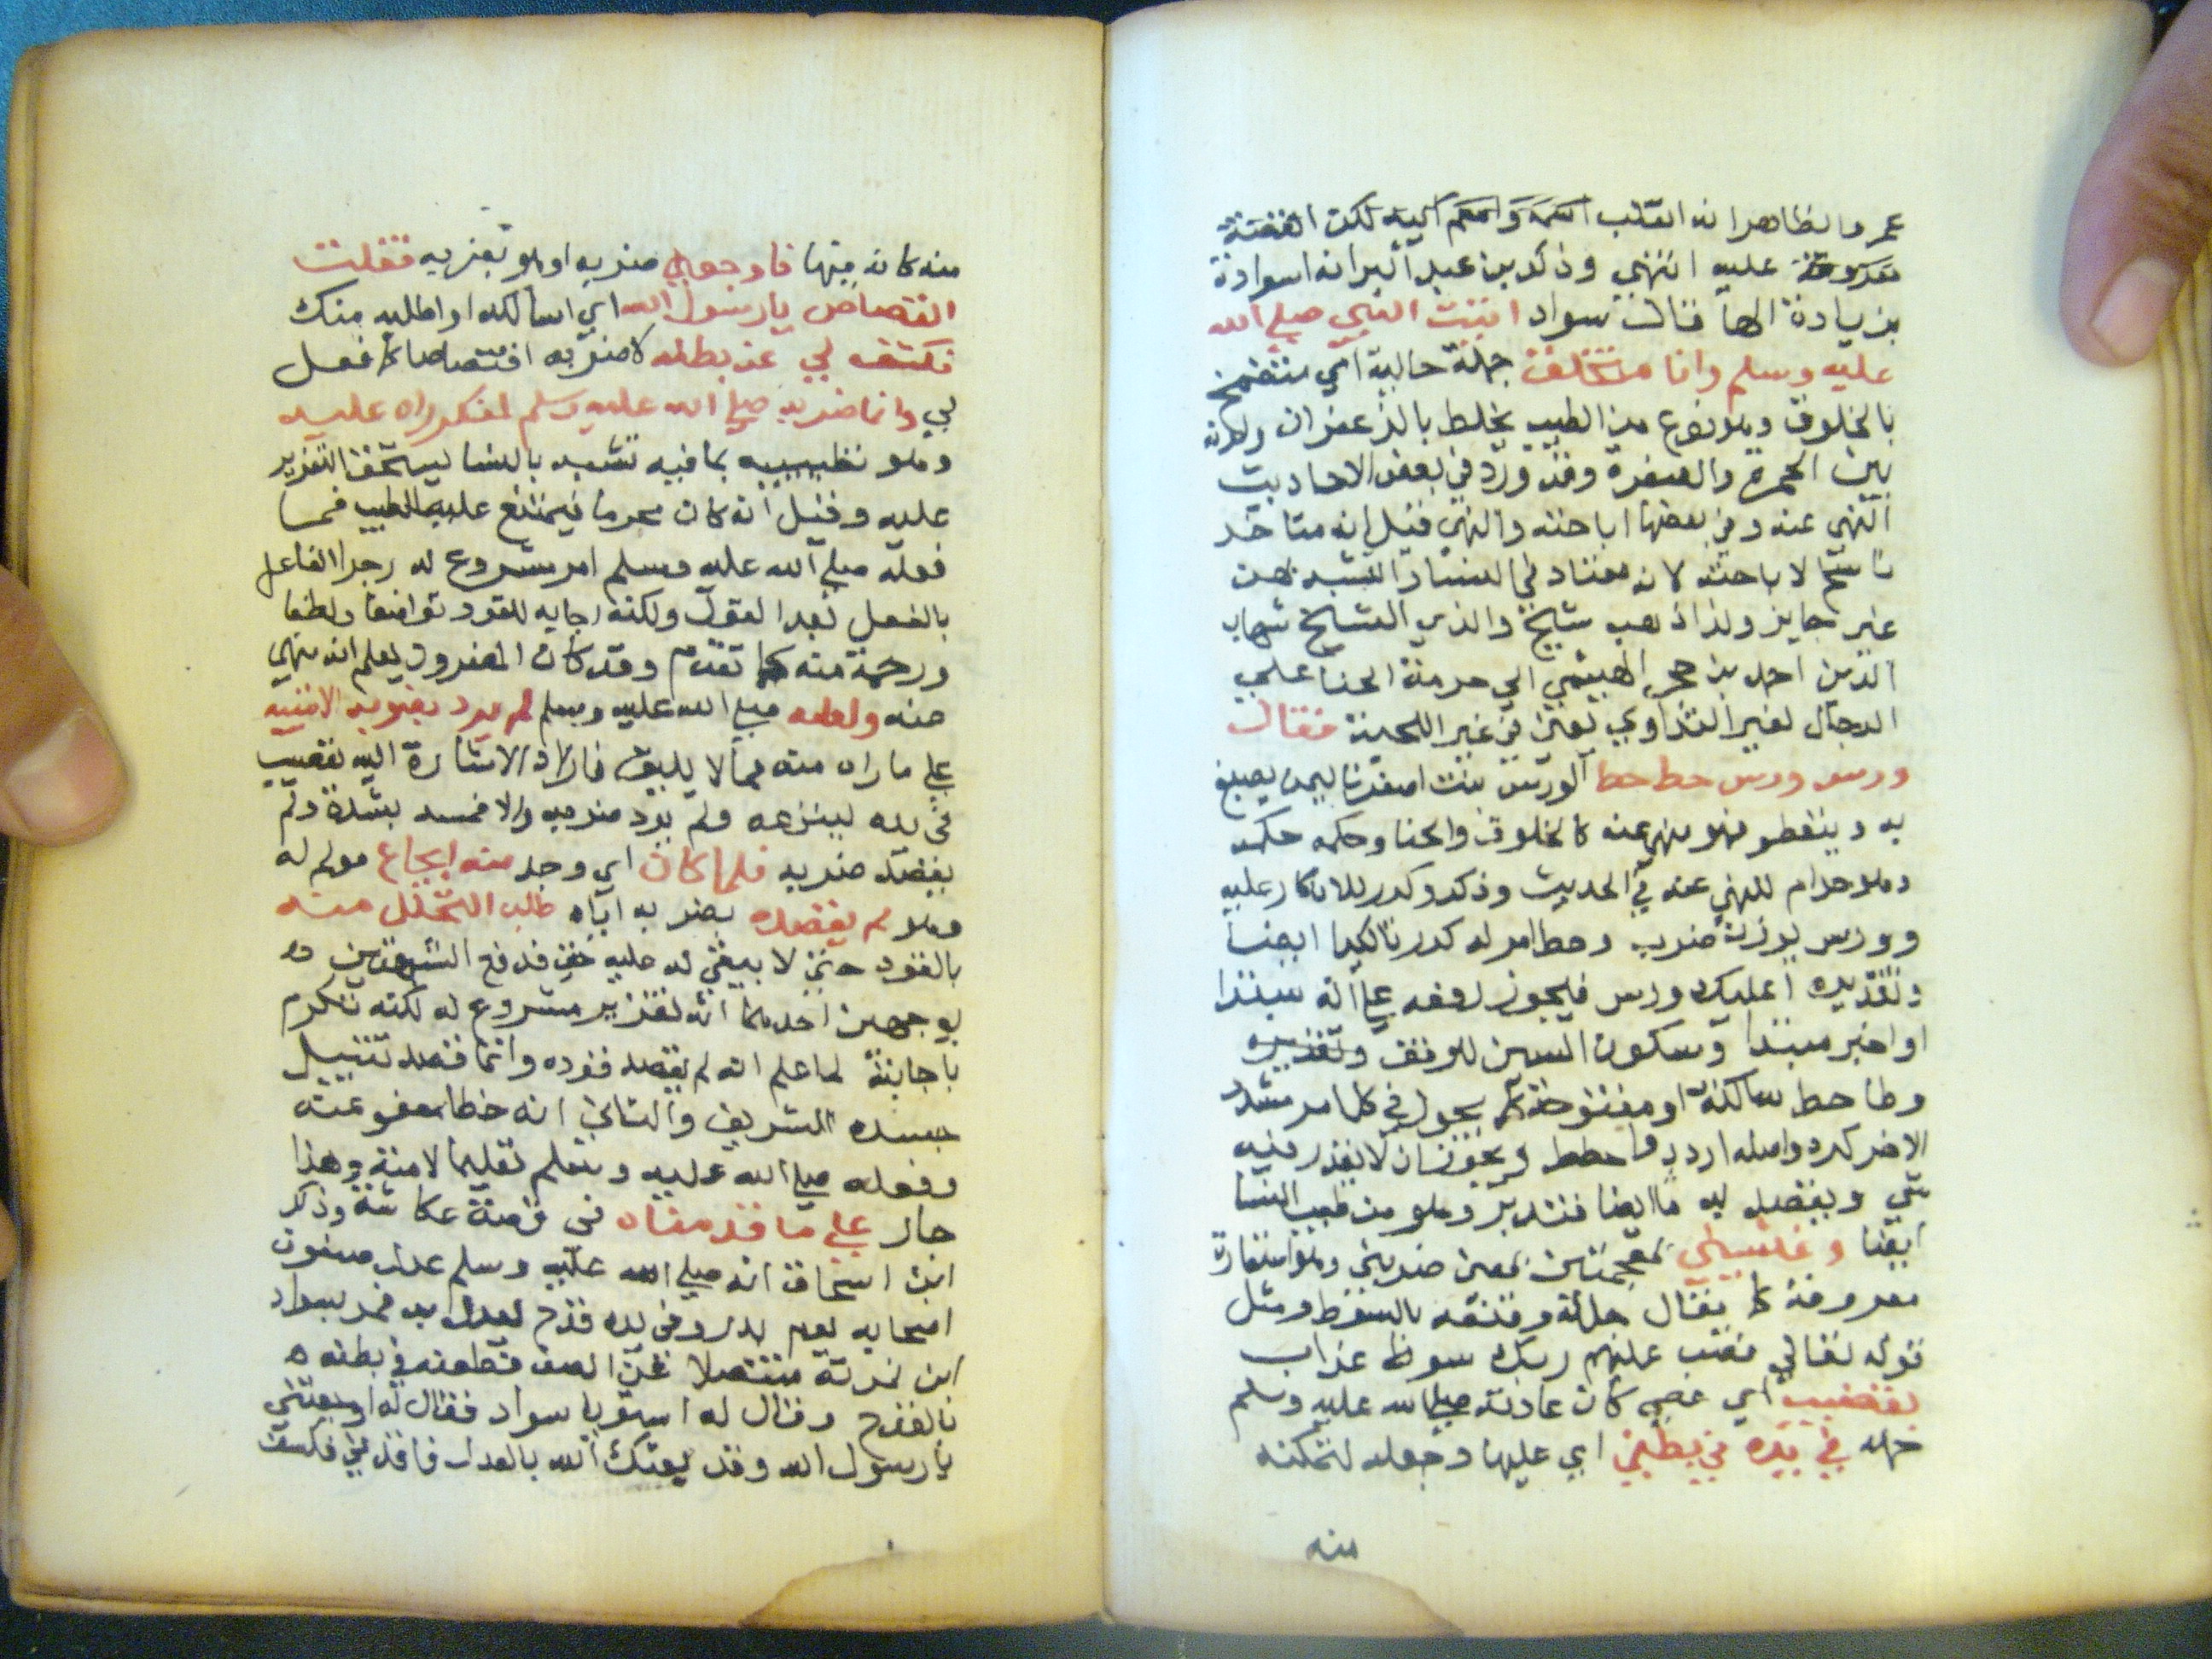 عمر والظاهر انه انقلب اليه لكن القصة
عليه انتهى وذكر بن عبد البر انه اسوادة
بزيادة الها فقال سواد اتيت النبي صلى الله
عليه وسلم وانا متخلق جملة حالية اي متضمخ
بالخلوق وهو نوع من الطيب يخلط بالزعفران ولونه
بين الحمرة والصفرة وقد ورد في بعض الاحاديث
النهي عنه وفي بعضها اباحته والنهي قيل انه متاخر
ناسخ لاباحته لانه معتاد للنسا والتشبه بهن
غير جايز ولذا ذهب شيخ والدي الشيخ شهاب
الدين احمد بن حجر الهيتمي الى حرمة الحنا على
الرجال لغير التداوي يعني في غير اللحية فقال
ورس ورس حط حط الورس نبت اصفر باليمن يصبغ
به وينقط وهو منهي عنه كالخلوق والحنا وحكمه حكمه
وهو حرام للنهي عنه في الحديث وذكره وكرر للانكار عليه
وورس بوزن ضرب وحط امر له كرر تاكيدا ايضا
وتقديره اعليك ورس فيجوز رفعه على انه مبتدا
او خبر مبتدا وسكون السين للوقف وتقديره
وطا حط ساكنة او مفتوحة كما يجوز في كل امر مشدد
الاخر كرد واصله اردد واحطط ويجوز ان لا يقدر فيه
شي ويقصد به ما ايضا فتدبر وهو من طيب النسا
ايضا وغشيني بمعجمتين بمعنى ضربني وهو استعارة
معروفة كما يقال جلله وقنعه بالسوط ومثل
قوله تعالى فصب عليهم ربك سوط عذاب
بقضيب اي عصى كان عادته صلى الله عليه وسلم
حمله في يده في بطني اي عليها وجعله لتمكنه
منه
منه كانه فيها فاوجعني ضربه او هو بضربه فقلت
القصاص يا رسول الله اي اسالكه او اطلبه منك
فكشف لي عن بطنه لاضربه اقتصاصا كما فعل
بي وانما ضربه صلى الله عليه وسلم لمنكر راه عليه
وهو تطييبه بما فيه تشبه بالنسا ليستحق التعزير
عليه وقيل انه كان محرما فيمتنع عليه الطيب فما
فعله صلى الله عليه وسلم امر مشروع له زجرا لفاعل
بالفعل بعد القول ولكنه اجابه للقود تواضعا ولطفا
ورحمة منه كما تقدم وقد كان المضروب يعلم انه نهي
عنه ولعله صلى الله عليه وسلم لم يرد بضربه الاتنبيه
على ما راه منه مما لا يليق فاراد الاشارة اليه بقضيب
في يده لينزعه ولم يرد ضربه والا فمسه بشدة ولم
يقصد ضربه فلما كان اي وجد منه ايجاع مولم له
وهو لم يقصده بضربه اياه طلب التحلل منه
بالقود حتى لا يبقى له عليه حق فدفع
بوجهين احدهما انه تعزير مشروع له لكنه تكرم
باجابته لما علم انه لم يقصد قوده وانما قصد تقبيل
جسده الشريف والثاني انه خطا معفو عنه
وفعله صلى الله عليه وسلم تعليما لامته وهذا
جار على ما قدمناه في قصة عكاشة وذكر
ابن اسحاق انه صلى الله عليه وسلم عدل صفوف
اصحابه يوم بدر وفي يده قدح يعدل به فمر بسواد
ابن غزية منتصلا عن الصف فطعنه في بطنه
بالقدح وقال له استو يا سواد فقال له اوجعتني
يا رسول الله وقد بعثك الله بالعدل فاقدني فكشف